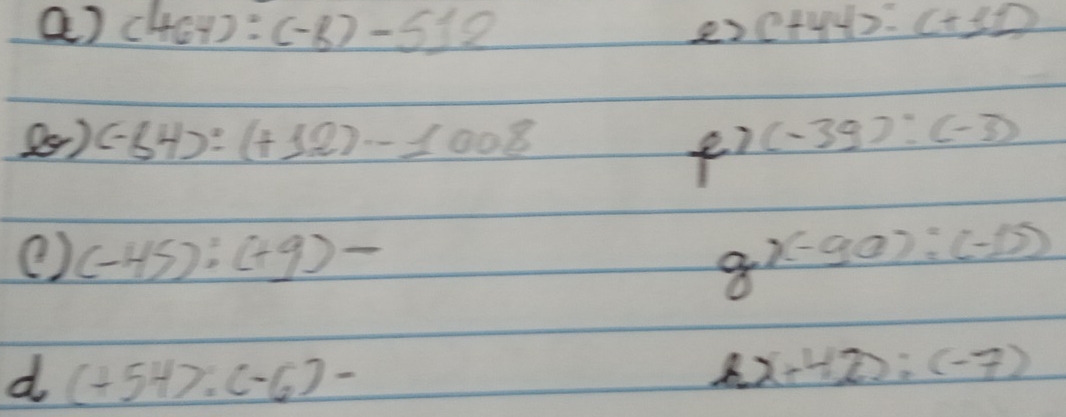 a) (+64) : (-8) - 512
e) (+44) : (+11)
b) (-84) : (+12) - - 1008
f) (-39) : (-3)
c) (-45) : (+9) -
g) (-90) : (-15)
d (+54) : (-6) -
h) (+42) : (-7)